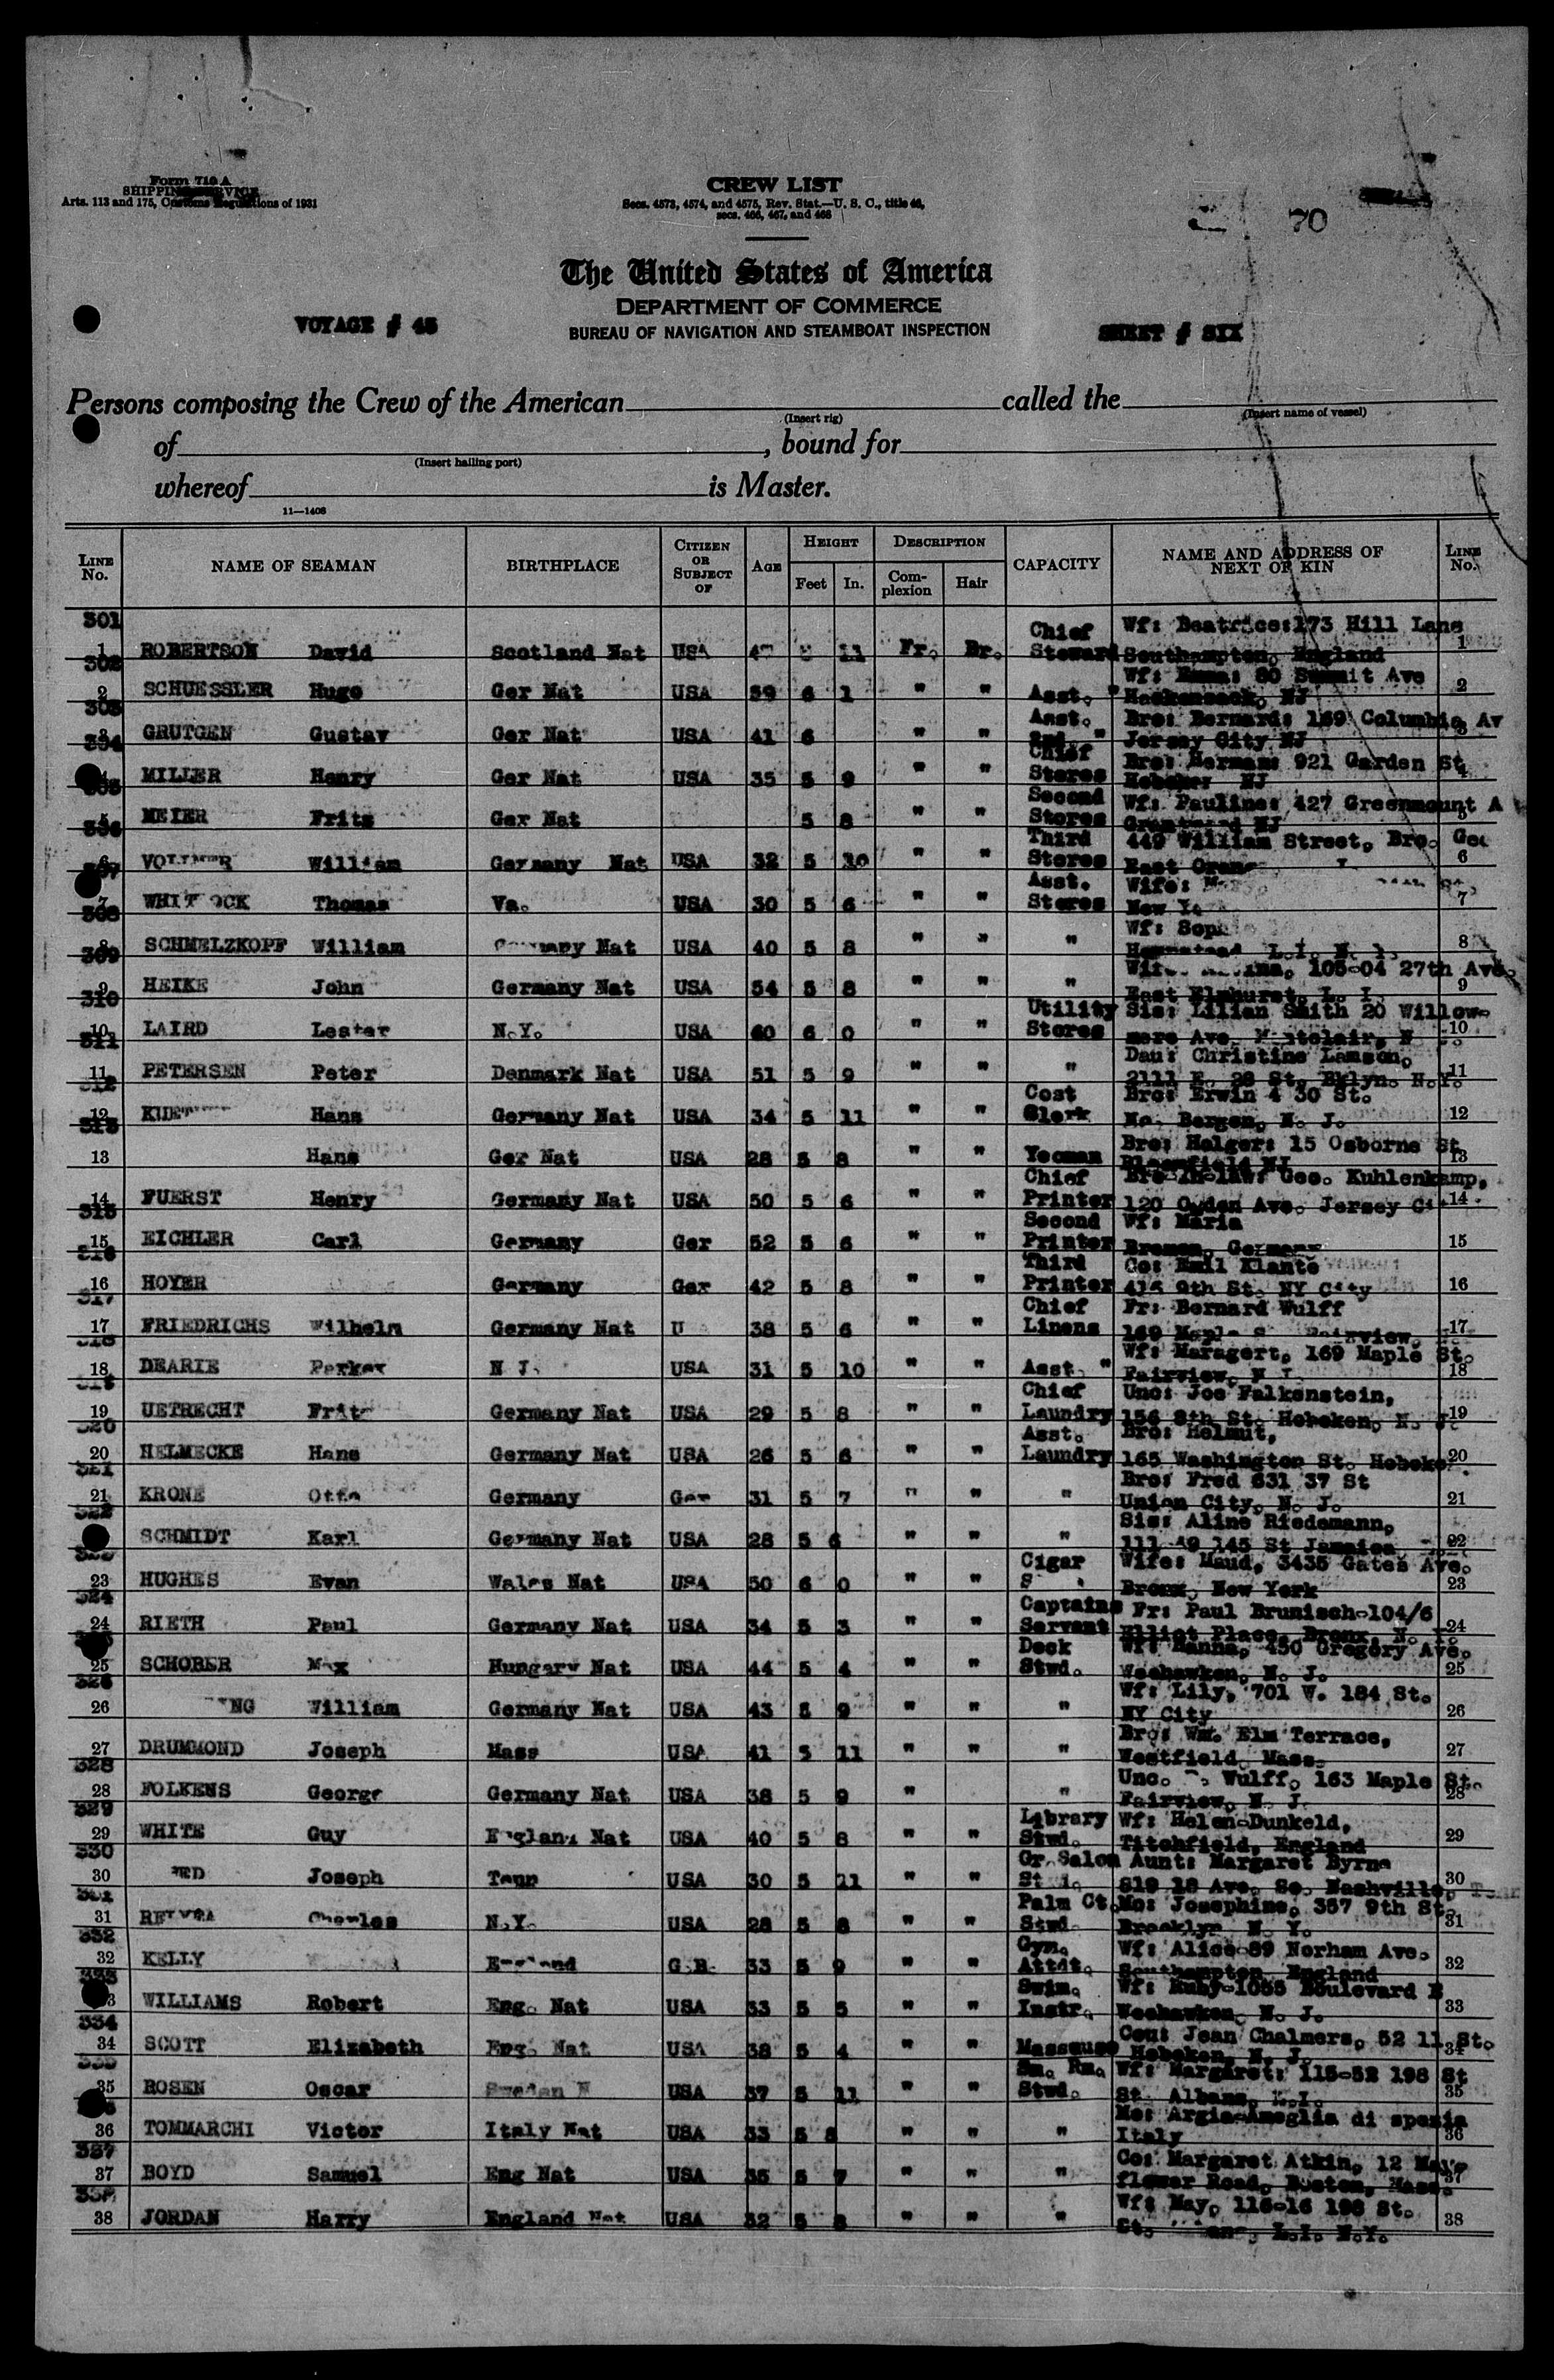 Form 710 A
SHIPPING SERVICE
Arts. 113 and 175, Customs Regulations of 1931
CREW LIST
Secs. 4573, 4574, and 4575, Rev. Stat.—U. S. C., title 46,
secs. 466, 467, and 468
70
The United States of America
DEPARTMENT OF COMMERCE
BUREAU OF NAVIGATION AND STEAMBOAT INSPECTION
VOYAGE # 45
SHEET # SIX
Persons composing the Crew of the American called the
(Insert rig) (Insert name of vessel)
of , bound for
(Insert hailing port)
whereof is Master.
11—1408
LINE No. NAME OF SEAMAN BIRTHPLACE CITIZEN OR SUBJECT OF AGE HEIGHT Feet In. DESCRIPTION Complexion Hair CAPACITY NAME AND ADDRESS OF NEXT OF KIN LINE No.
301 Chief Wf: Beatrice:173 Hill Lane
1 ROBERTSON David Scotland Nat USA 11 Fr. Br. Steward Southampton, England 1
302 Wf: 80 Summit Ave
2 SCHUESSLER Hugo Ger Nat USA 39 6 1 " " Asst. " Hackensack, NJ 2
303 Asst. Bro: Bernard: 169 Columbia Av
GRUTGEN Gustav Ger Nat USA 41 6 " " 2nd " Jersey City NJ 3
304 Chief Bro: Herman: 921 Garden St
MILLER Henry Ger Nat USA 35 5 9 " " Stores Hoboken NJ 4
305 Second Wf: Pauline: 427 Greenmount A
5 MEIER Fritz Ger Nat 5 8 " " Stores Grantwood NJ 5
306 Third 449 William Street, Bro. Geo
6 VOLLMER William Germany Nat USA 32 5 10 " " Stores East 6
307 Asst. Wife:
7 Thomas Va. USA 30 5 6 " " Stores New 7
308 Wf:
8 SCHMELZKOPF William Germany Nat USA 40 5 8 " " " Hempstead L.I. N. Y. 8
309 105-04 27th Ave.
9 HEIKE John Germany Nat USA 54 5 8 " " " East Elmhurst, L. I. 9
310 Utility Sis: Lilian Smith 20 Willow-
10 LAIRD Lester N.Y. USA 60 6 0 " " Stores mere Ave. Montclair, N 10
311 Dau: Christine Lamson,
11 PETERSEN Peter Denmark Nat USA 51 5 9 " " " 2111 E. 28 St. Bklyn. N.Y. 11
312 Cost Bro: Erwin 4 30 St.
12 Hans Germany Nat USA 34 5 11 " " Clerk No. Bergen, N. J. 12
313 Bro: Holger: 15 Osborne St
13 Hans Ger Nat USA 28 5 8 " " Yeoman Bloomfield NJ 13
Chief Bro-in-law: Geo. Kuhlenkamp,
14 FUERST Henry Germany Nat USA 50 5 6 " " Printer 120 Ogden Ave. Jersey 14
315 Second Wf: Maria
15 EICHLER Carl Germany Ger 52 5 6 " " Printer Bremen, Germany 15
316 Third Co: Emil Klante
16 HOYER Germany Ger 42 5 8 " " Printer 415 9th St. NY City 16
317 Chief Fr: Bernard Wulff
17 FRIEDRICHS Wilhelm Germany Nat U 38 5 6 " " Linens 169 Maple Fairview, 17
318 Wf: Maragert, 169 Maple St.
18 DEARIE Parker N J. USA 31 5 10 " " Asst. " Fairview, N J. 18
319 Chief Unc: Joe Falkenstein,
19 UETRECHT Fritz Germany Nat USA 29 5 8 " " Laundry 156 8th St. Hoboken, N. J. 19
320 Asst. Bro: Helmut,
20 HELMECKE Hans Germany Nat USA 26 5 6 " " Laundry 165 Washington St. Hoboken 20
321 Bro: Fred 631 37 St
21 KRONE Otto Germany Ger 31 5 7 " " " Union City, N. J. 21
322 Sis: Aline Riedemann,
SCHMIDT Karl Germany Nat USA 28 5 6 " " " 111-49 145 St Jamaica 22
Cigar Wife: Maud, 3435 Gates Ave.
23 HUGHES Evan Wales Nat USA 50 6 0 " " Bronx, New York 23
324 Captains Fr: Paul Brunisch-104/6
24 RIETH Paul Germany Nat USA 34 5 3 " " Servant Elliot Place, Bronx, N. Y. 24
Deck Wf: Hanna, 450 Gregory Ave.
25 SCHOBER Max Hungary Nat USA 44 5 4 " " Stwd. Weehawken, N. J. 25
326 Wf: Lily, 701 W. 184 St.
26 William Germany Nat USA 43 5 9 " " " NY City 26
Bro: Wm. Elm Terrace,
27 DRUMMOND Joseph Mass USA 41 5 11 " " " Westfield, Mass. 27
328 Unc. Wulff, 163 Maple St.
28 FOLKENS George Germany Nat USA 38 5 9 " " Fairview, N. J. 28
329 Library Wf: Helen-Dunkeld,
29 WHITE Guy England Nat USA 40 5 8 " " Stwd. Titchfield, England 29
330 Gr. Salon Aunt: Margaret Byrne
30 Joseph Tenn USA 30 5 11 " " 819 18 Ave. So. Nashville, Tenn 30
331 Palm Ct. Mo: Josephine, 357 9th St.
31 Charles N.Y. USA 28 5 8 " " Stwd. Brooklyn N. Y. 31
332 Gym. Wf: Alice-89 Norham Ave.
32 KELLY England G.B. 33 5 9 " " Attdt. Southampton, England 32
333 Swim. Wf: Ruby-1055 Boulevard E
WILLIAMS Robert Eng. Nat USA 33 5 5 " " Instr. Weehawken, N. J. 33
334 Cou: Jean Chalmers, 52 11 St.
34 SCOTT Elizabeth Eng. Nat USA 38 5 4 " " Masseuse Hoboken, N. J. 34
335 Sm. Rm. Wf: Margaret: 115-52 198 St
35 ROSEN Oscar Sweden N USA 37 5 11 " " Stwd. St. Albans, L.I. 35
Mo: Argia-Ameglia di spezia
36 TOMMARCHI Victor Italy Nat USA 33 5 8 " " " Italy 36
337 Co: Margaret Atkin, 12 May-
37 BOYD Samuel Eng Nat USA 35 5 7 " " " flower Road, Boston, Mass. 37
338 Wf: May, 115-16 198 St.
38 JORDAN Harry England Nat USA 32 5 8 " " " St. L.I. N.Y. 38